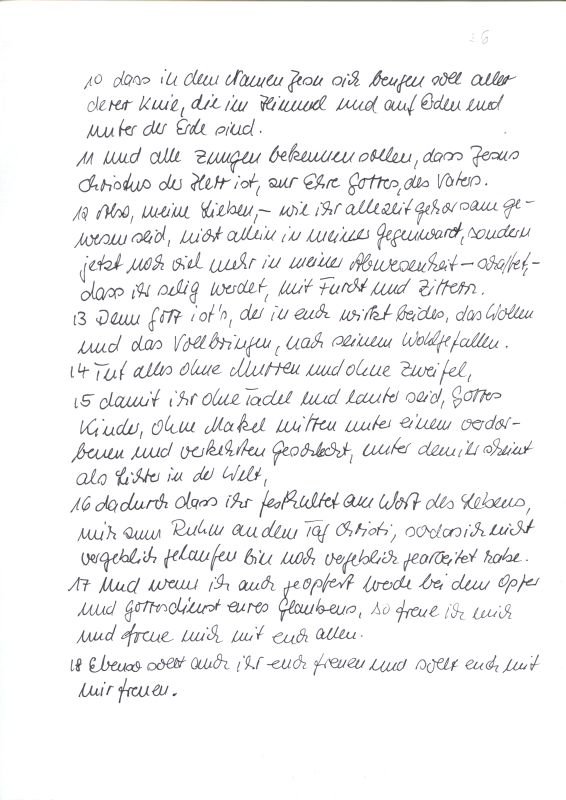 10 dass in dem Namen Jesu sich beugen soll aller
derer Knie, die im Himmel und auf Erden und
unter der Erde sind.
11 und alle Zungen bekennen sollen, dass Jesus
Christus der Herr ist, zur Ehre Gottes, des Vaters.
12 Also, meine Lieben, – wie ihr allezeit gehorsam ge-
wesen seid, nicht allein in meiner Gegenwart, sondern
jetzt noch viel mehr in meiner Abwesenheit – schaffet, –
dass ihr selig werdet, mit Furcht und Zittern.
13 Denn Gott ist's, der in euch wirket beides, das Wollen
und das Vollbringen, nach seinem Wohlgefallen.
14 Tut alles ohne Murren und ohne Zweifel,
15 damit ihr ohne Tadel und lauter seid, Gottes
Kinder, ohne Makel mitten unter einem verdor-
benen und verkehrten Geschlecht, unter dem ihr scheint
als Lichter in der Welt,
16 dadurch dass ihr festhaltet am Wort des Lebens,
mir zum Ruhm an dem Tag Christi, sodass ich nicht
vergeblich gelaufen bin noch vergeblich gearbeitet habe.
17 Und wenn ich auch geopfert werde bei dem Opfer
und Gottesdienst eures Glaubens, so freue ich mich
und freue mich mit euch allen.
18 Ebenso sollt auch ihr euch freuen und sollt euch mit
mir freuen.